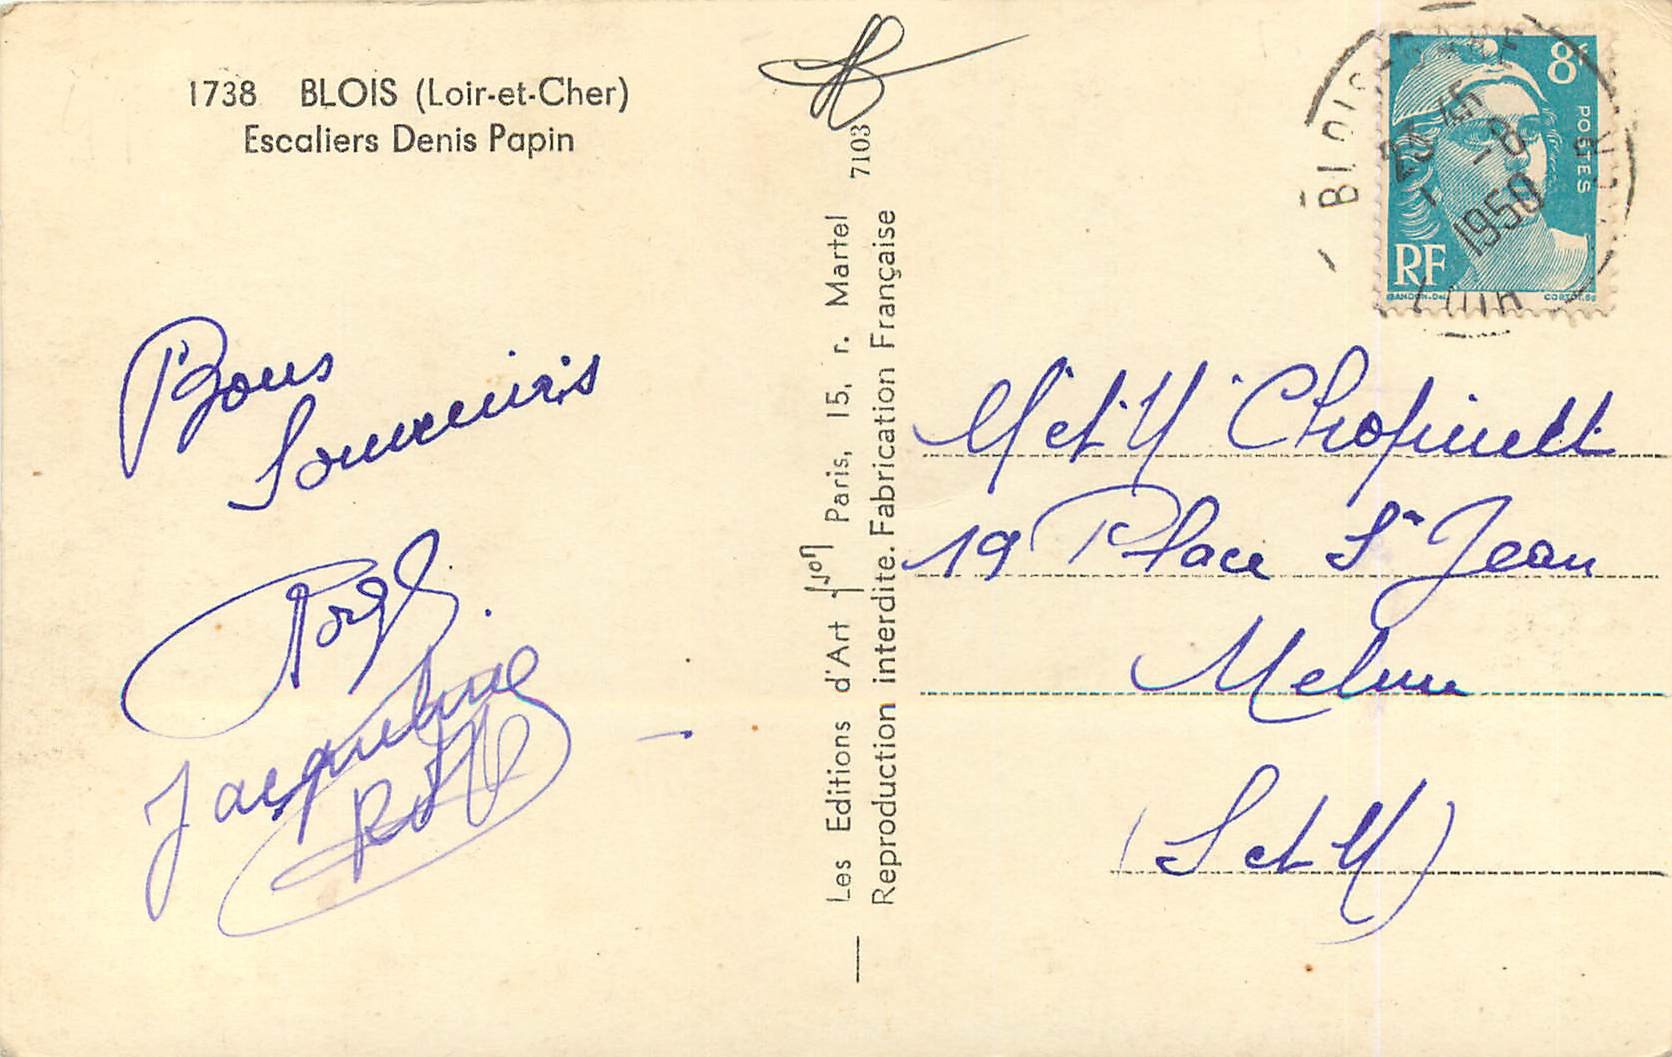 1738 BLOIS (Loir-et-Cher)
Escaliers Denis Papin
Bons
Souvenirs
Jacqueline
Les Editions d'Art Yvon Paris, 15, r. Martel 7103
Reproduction interdite. Fabrication Française
8F
POSTES
RF
GANDON-Del
CORTOT.Sc
BLOIS-GARE
20 45
1 -8
1950
LOIR
M et M
19 Place St Jean
Melun
(S et M)